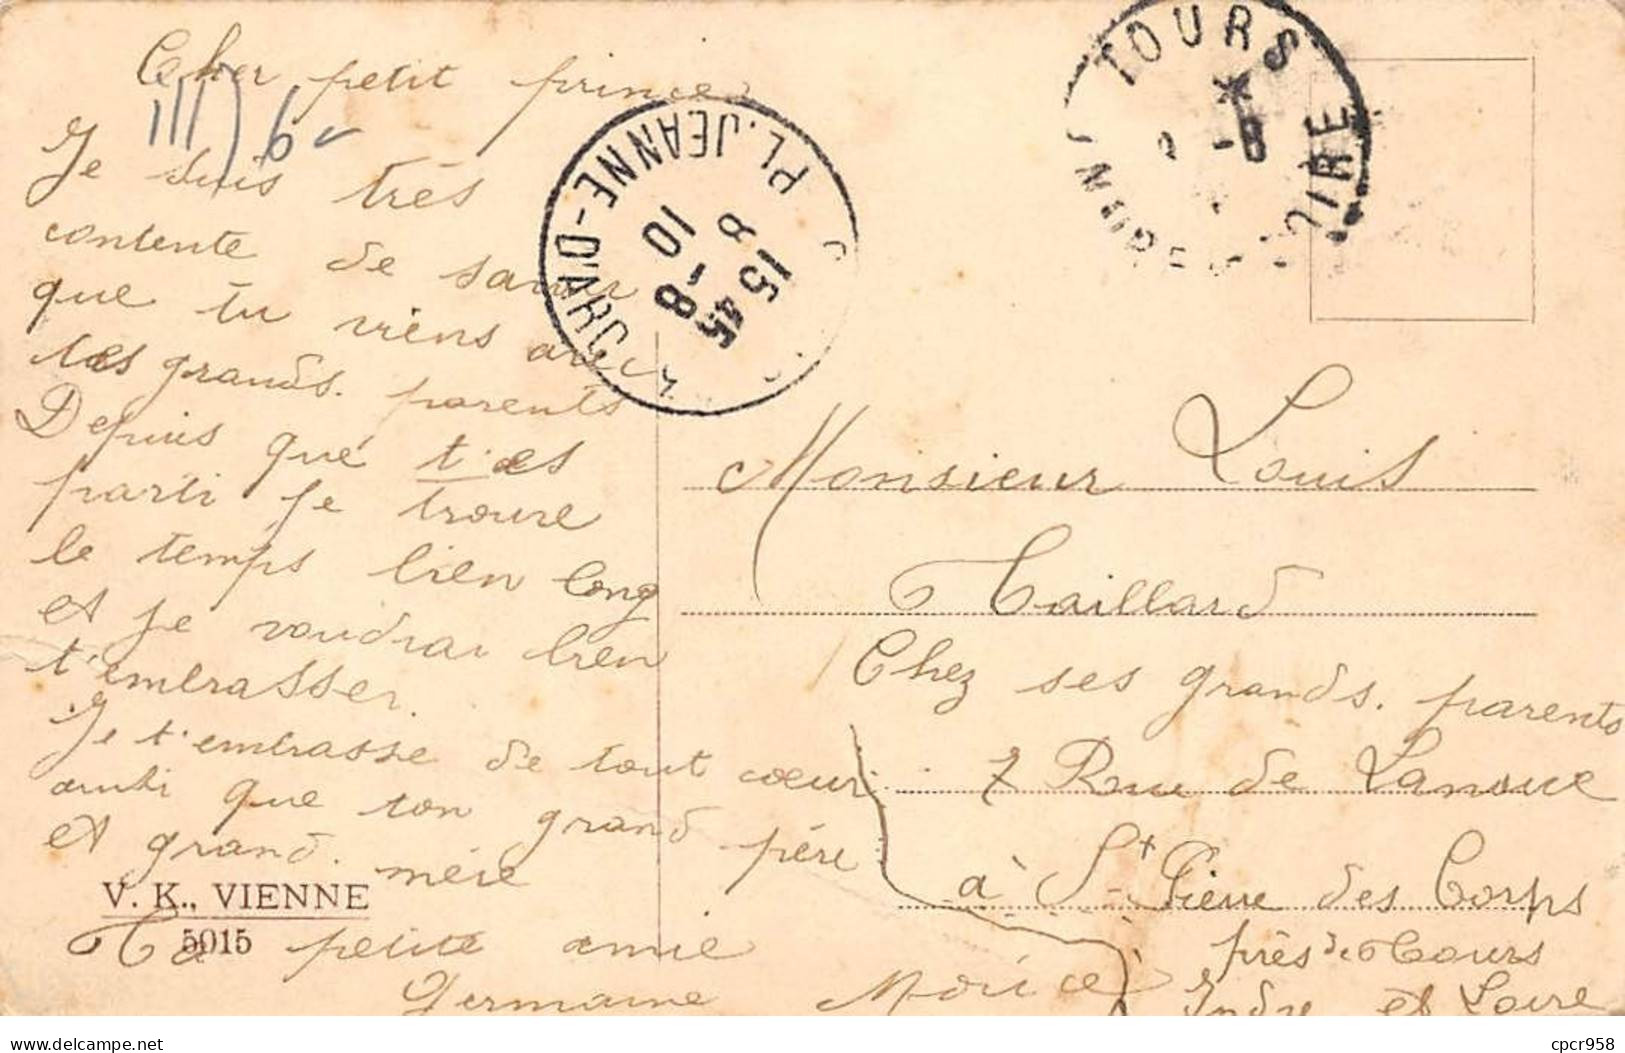 Cher petit prince
Je suis très
contente de savoir
que tu viens avec
tes grands. parents
Depuis que t'es
parti je trouve
le temps bien long
et je voudrai bien
t'embrasser.
Je t'embrasse de tout coeur
ainsi que ton grand père
et grand. mère
Ta petite amie
Germaine Morice
V. K., VIENNE
5015
PL. JEANNE-D'ARC
15 45
8 -8
10
TOURS
-8
LOIRE
Monsieur Louis
Taillard
Chez ses grands. parents
7 Rue de Lanoue
à St Pierre des Corps
près de Tours
Indre et Loire
www.delcampe.net
cpcr958